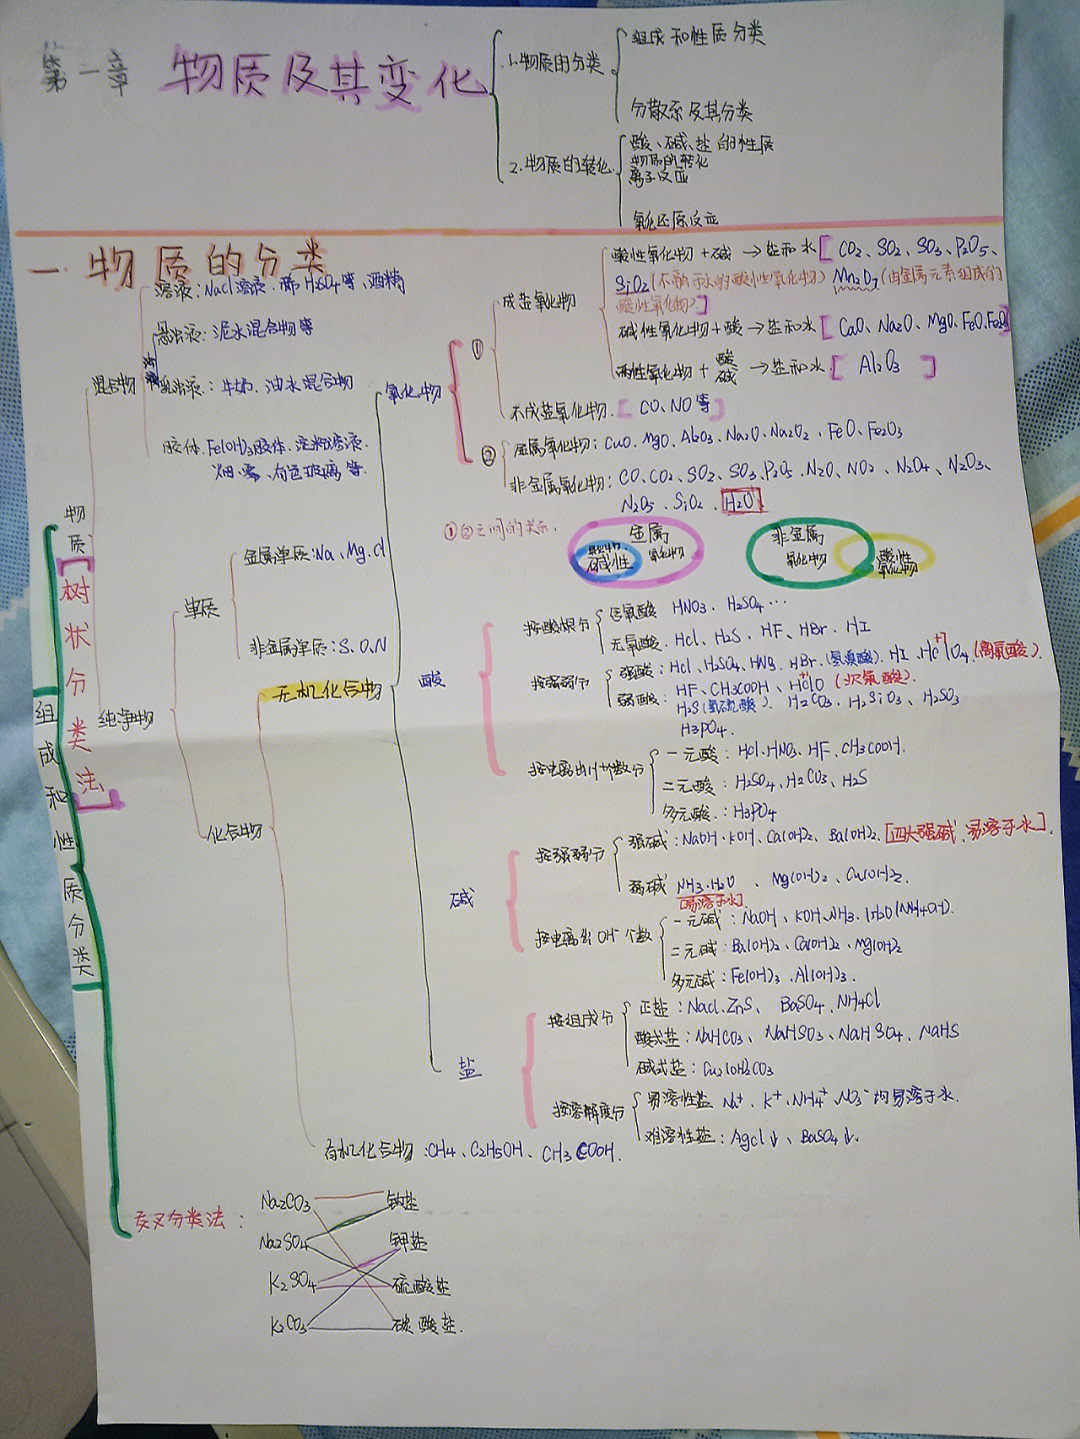 第一章 物质及其变化
1.物质的分类
组成和性质分类
分散系及其分类
2.物质的转化
酸、碱、盐的性质
物质的转化
离子反应
氧化还原反应
一.物质的分类
组成和性质分类
物质
[树状分类法]
混合物
溶液:NaCl溶液.稀H2SO4等、酒精
悬浊液:泥水混合物等
浊液
乳浊液:牛奶.油水混合物
胶体.Fe(OH)3胶体.淀粉溶液.
烟.雾、有色玻璃等.
纯净物
单质
金属单质:Na、Mg.Cl
非金属单质:S、O、N
化合物
无机化合物
氧化物
①
成盐氧化物
酸性氧化物+碱→盐和水[CO2、SO2、SO3、P2O5、
SiO2(不融于水的酸性氧化物)Mn2O7(由金属元素组成的
酸性氧化物)]
碱性氧化物+酸→盐和水[CaO、Na2O、MgO、FeO.Fe2O3]
两性氧化物+酸碱→盐和水[Al2O3]
不成盐氧化物.[CO、NO等]
②
金属氧化物:CuO、MgO、Al2O3、Na2O、Na2O2、FeO、Fe2O3
非金属氧化物:CO、CO2、SO2、SO3、P2O5、N2O、NO2、N2O4、N2O3、
N2O5、SiO2、H2O
①②之间的关系.
金属
氧化物
碱性
氧化物
非金属
氧化物
酸性
氧化物
酸
按酸根分
含氧酸 HNO3、H2SO4…
无氧酸.HCl、H2S、HF、HBr、HI
按强弱分
强酸:HCl、H2SO4、HNO3、HBr.(氢溴酸).HI、HClO4(高氯酸).
+7
弱酸:HF、CH3COOH、HClO(次氯酸).
+1
H2S(氢硫酸)、H2CO3、H2SiO3、H2SO3
H3PO4.
按电离出H+个数分
一元酸:HCl、HNO3、HF、CH3COOH.
二元酸:H2SO4、H2CO3、H2S
多元酸.:H3PO4
碱
按强弱分
强碱:NaOH、KOH、Ca(OH)2、Ba(OH)2.[四大强碱.易溶于水].
弱碱 NH3·H2O、Mg(OH)2、Cu(OH)2.
[易溶于水]
按电离出OH-个数
一元碱:NaOH、KOH、NH3·H2O(NH4OH).
二元碱:Ba(OH)2、Ca(OH)2、Mg(OH)2
多元碱:Fe(OH)3、Al(OH)3.
盐
按组成分
正盐:NaCl、ZnS、BaSO4、NH4Cl
酸式盐:NaHCO3、NaHSO3、NaHSO4、NaHS
碱式盐:Cu2(OH)2CO3
按溶解度分
易溶性盐 Na+、K+、NH4+、NO3-均易溶于水.
难溶性盐:AgCl↓、BaSO4↓.
有机化合物:CH4、C2H5OH、CH3COOH.
交叉分类法:
Na2CO3 钠盐
Na2SO4 钾盐
K2SO4 硫酸盐
K2CO3 碳酸盐.